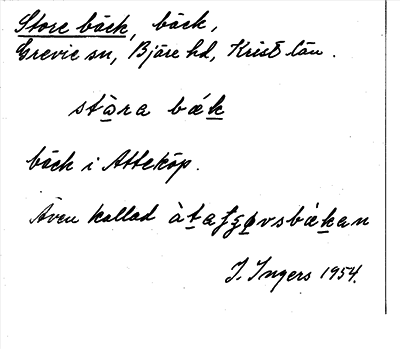 Store bäck, bäck,
Grevie sn, Bjäre hd, Krist län.
stǫra bæk
bäck i Atteköp.
Även kallad
I. Ingers 1954.